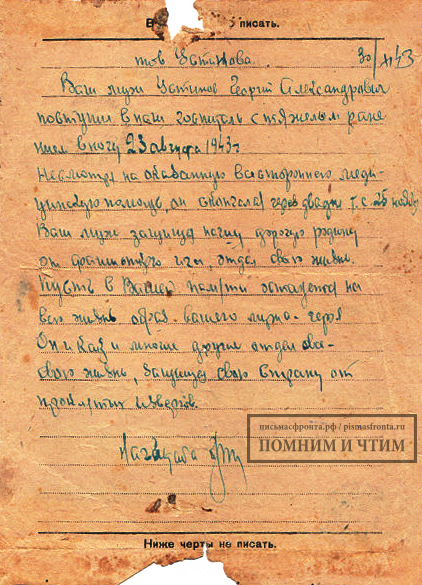 В писать.
тов Устинова. 30/XI 43
Ваш муж Устинов Георгий Александрович
поступил в наш госпиталь с тяжелым ране
нием в ногу 23 августа 1943г
Несмотря на оказанную всестороннего меди-
цинскую помощь, он скончался через два дня т.е. 25
Ваш муж защищая нашу дорогую родину
от фашистского ига, отдал свою жизнь.
Пусть в Вашей памяти останется на
всю жизнь образ вашего мужа-героя
Он как и многие другие отдал
свою жизнь, защищая свою страну от
проклятых извергов.
письмасфронта.рф / pismasfronta.ru
ПОМНИМ И ЧТИМ
Ниже черты не писать.